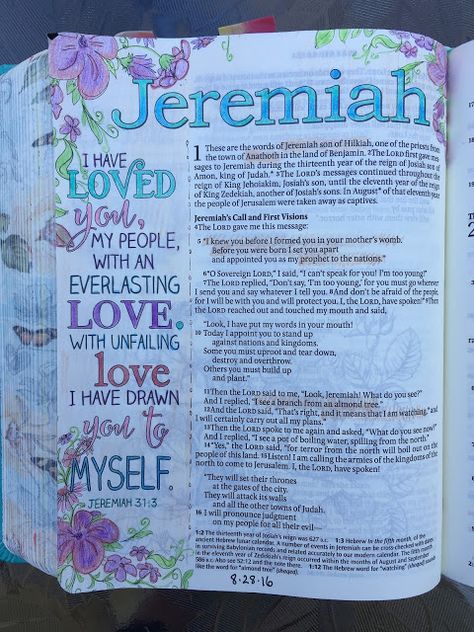 Jeremiah
I HAVE
LOVED
you,
MY PEOPLE,
WITH AN
EVERLASTING
LOVE.
WITH UNFAILING
love
I HAVE DRAWN
you to
MYSELF.
JEREMIAH 31:3
1 These are the words of Jeremiah son of Hilkiah, one of the priests from
the town of Anathoth in the land of Benjamin. 2The LORD first gave mes-
sages to Jeremiah during the thirteenth year of the reign of Josiah son of
Amon, king of Judah.* 3The LORD's messages continued throughout the
reign of King Jehoiakim, Josiah's son, until the eleventh year of the reign
of King Zedekiah, another of Josiah's sons. In August* of that eleventh year
the people of Jerusalem were taken away as captives.
Jeremiah's Call and First Visions
4The LORD gave me this message:
5 "I knew you before I formed you in your mother's womb.
Before you were born I set you apart
and appointed you as my prophet to the nations."
6"O Sovereign LORD," I said, "I can't speak for you! I'm too young!"
7The LORD replied, "Don't say, 'I'm too young,' for you must go wherever
I send you and say whatever I tell you. 8And don't be afraid of the people,
for I will be with you and will protect you. I, the LORD, have spoken!" 9Then
the LORD reached out and touched my mouth and said,
"Look, I have put my words in your mouth!
10 Today I appoint you to stand up
against nations and kingdoms.
Some you must uproot and tear down,
destroy and overthrow.
Others you must build up
and plant."
11Then the LORD said to me, "Look, Jeremiah! What do you see?"
And I replied, "I see a branch from an almond tree."
12And the LORD said, "That's right, and it means that I am watching,* and
I will certainly carry out all my plans."
13Then the LORD spoke to me again and asked, "What do you see now?"
And I replied, "I see a pot of boiling water, spilling from the north."
14"Yes," the LORD said, "for terror from the north will boil out on the
people of this land. 15Listen! I am calling the armies of the kingdoms of the
north to come to Jerusalem. I, the LORD, have spoken!
"They will set their thrones
at the gates of the city.
They will attack its walls
and all the other towns of Judah.
16 I will pronounce judgment
on my people for all their evil—
1:2 The thirteenth year of Josiah's reign was 627 B.C. 1:3 Hebrew In the fifth month, of the
ancient Hebrew lunar calendar. A number of events in Jeremiah can be cross-checked with dates
in surviving Babylonian records and related accurately to our modern calendar. The fifth month
in the eleventh year of Zedekiah's reign occurred within the months of August and September
586 B.C. Also see 52:12 and the note there. 1:12 The Hebrew word for "watching" (shoqed) sounds
like the word for "almond tree" (shaqed).
8-28-16